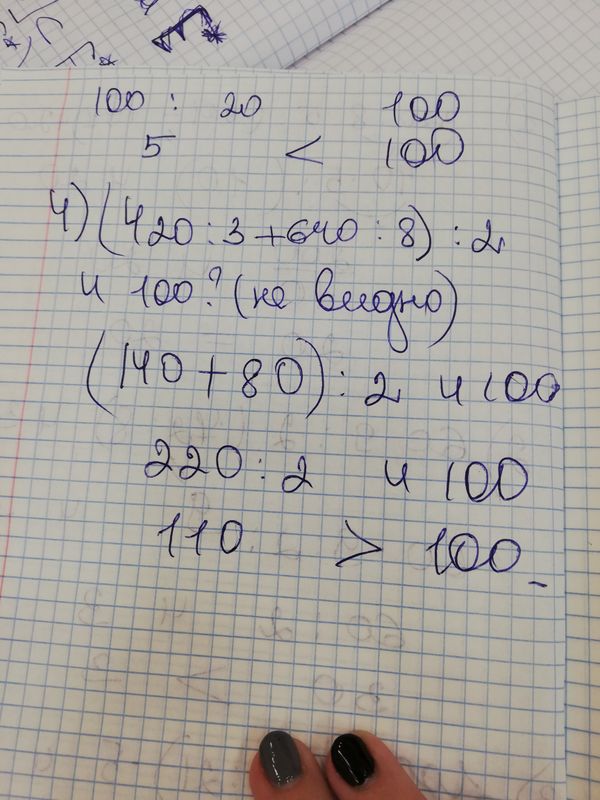 100 : 20 100
5 < 100
4) (420 : 3 + 640 : 8) : 2
и 100? (не видно)
(140 + 80) : 2 и 100
220 : 2 и 100
110 > 100